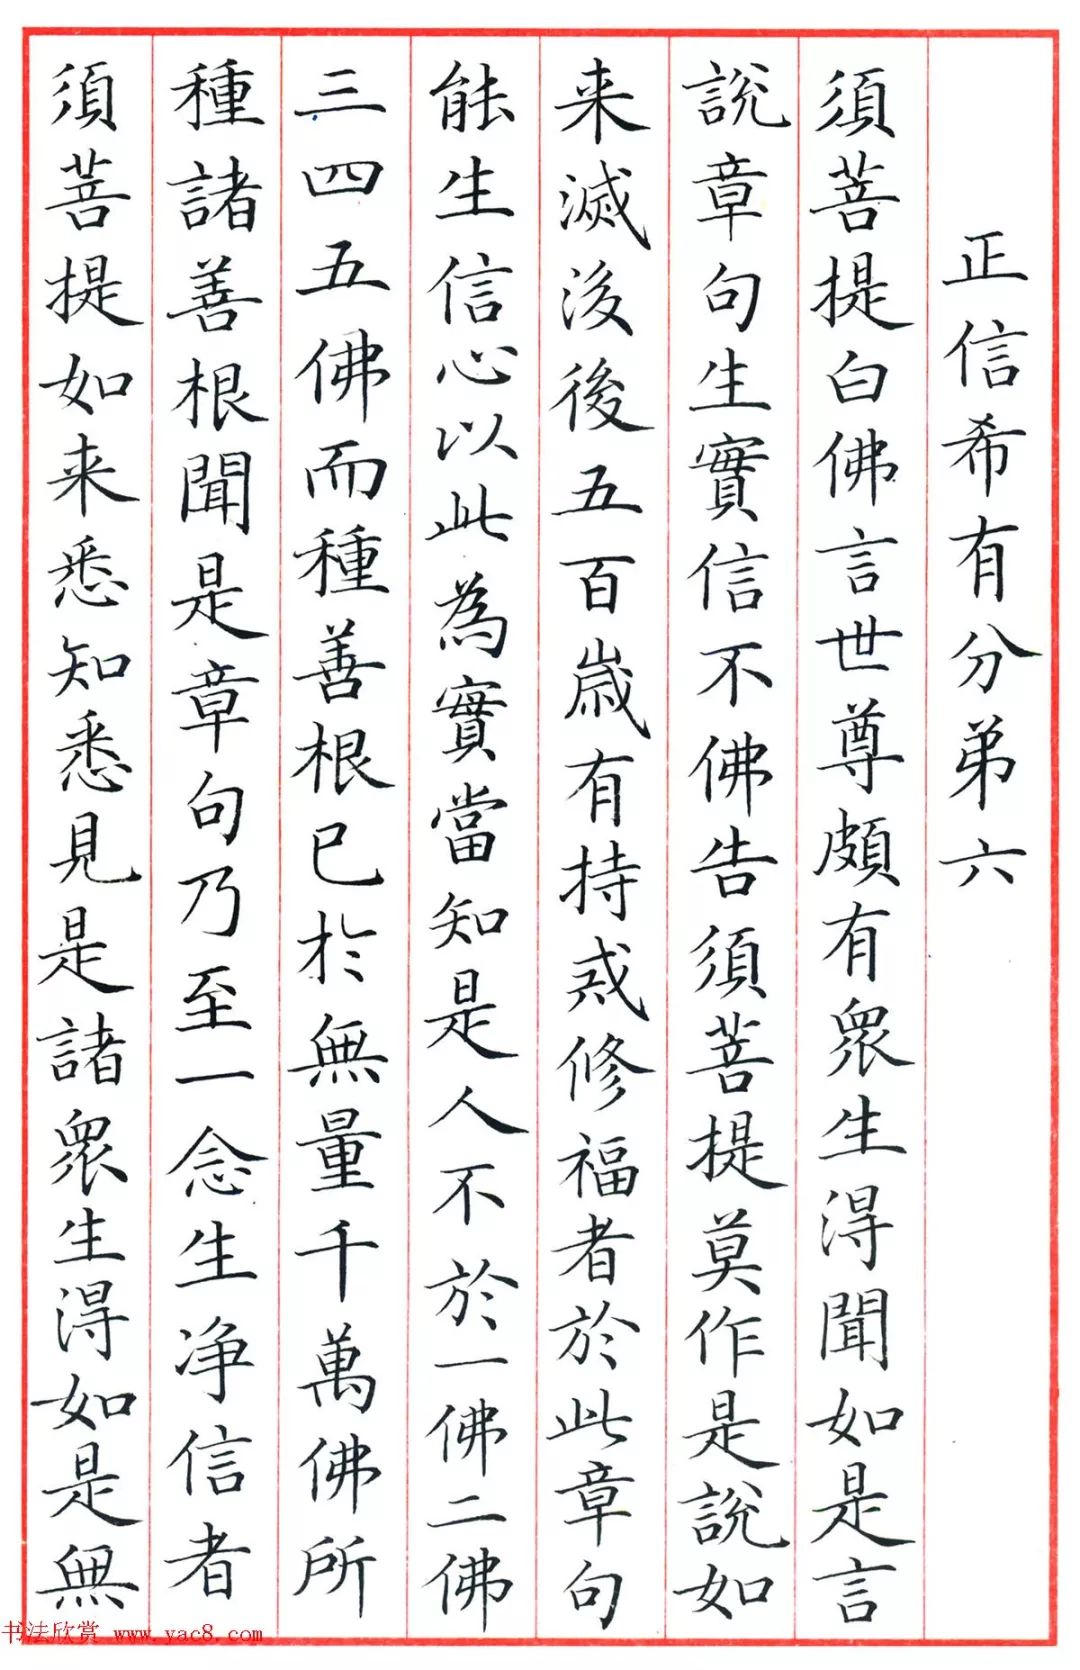 正信希有分弟六
須菩提白佛言世尊頗有眾生得聞如是言
說章句生實信不佛告須菩提莫作是說如
来滅後後五百歲有持戒修福者於此章句
能生信心以此為實當知是人不於一佛二佛
三四五佛而種善根已於無量千萬佛所
種諸善根聞是章句乃至一念生净信者
須菩提如来悉知悉見是諸眾生得如是無
书法欣赏 www.yac8.com